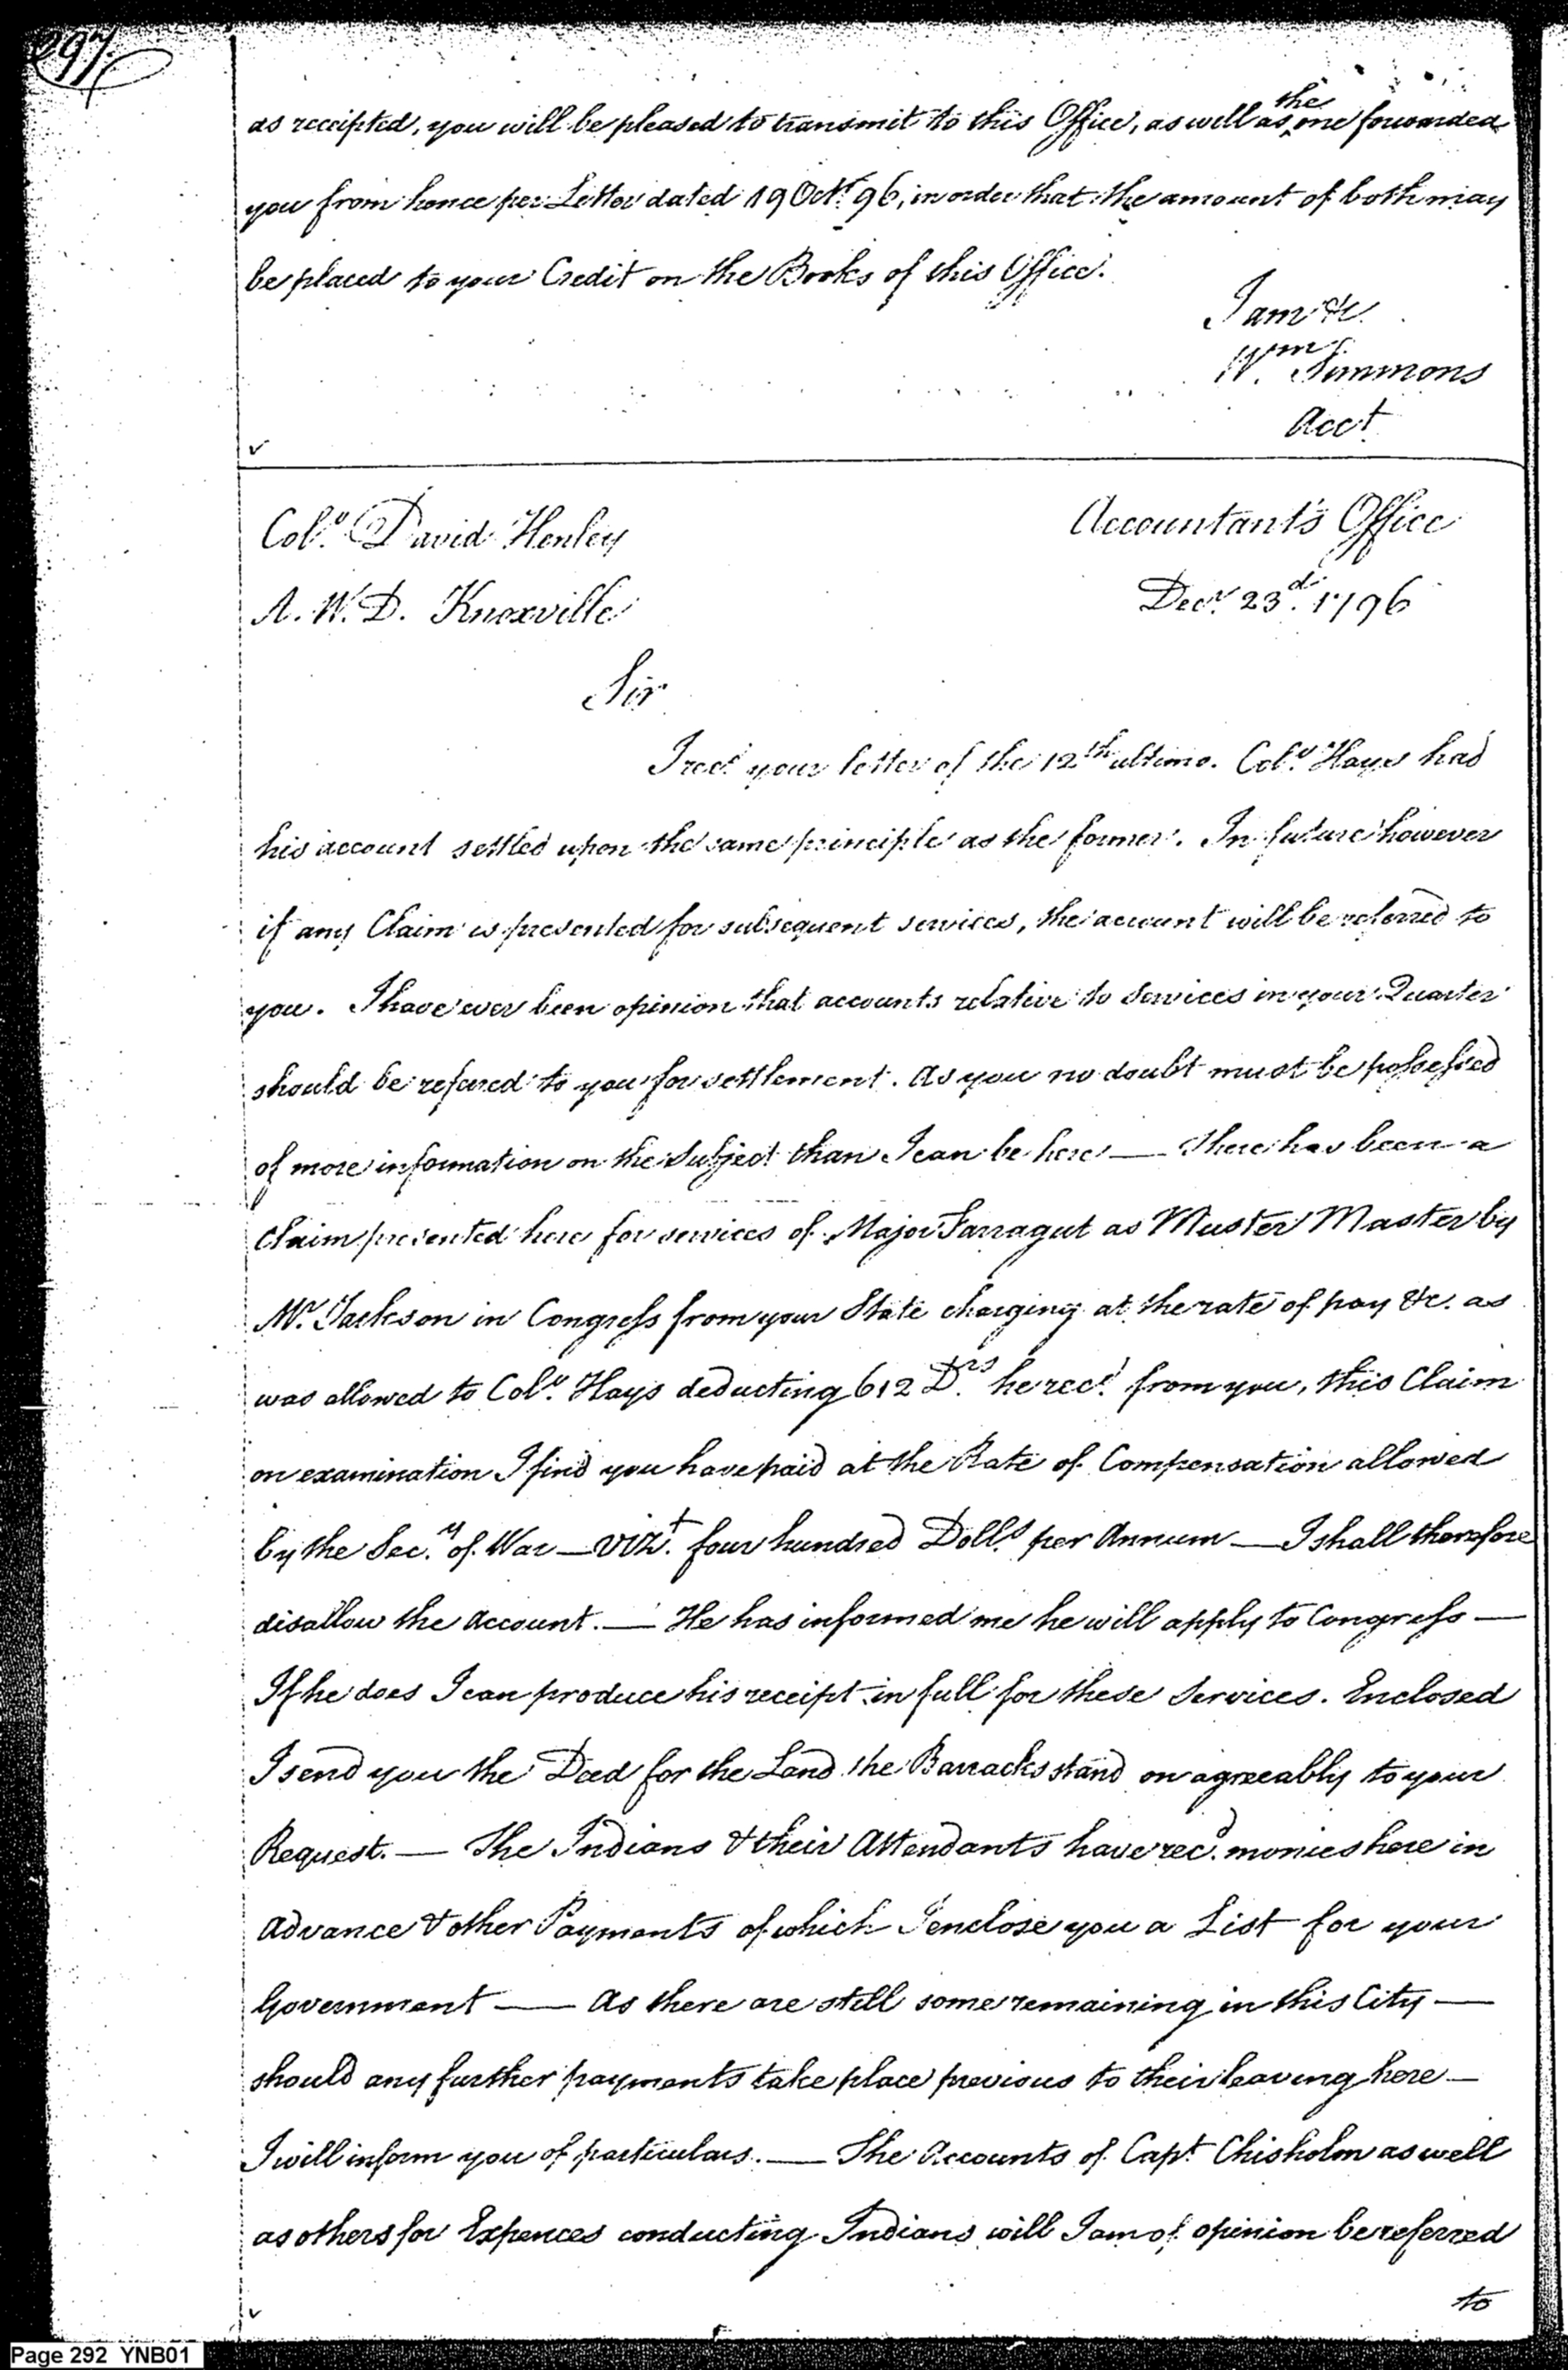 297
as receipted, you will be pleased to transmit to this Office, as well as the one forwarded
you from hence per Letter dated 19 Octr. 96, in order that the amount of both may
be placed to your Credit on the Books of this Office.
I am &c.
Wm. Simmons
Acct
Colo. David Henley
Accountant's Office
A. W. D. Knoxville
Decr. 23d. 1796
Sir
I recd. your letter of the 12th ultimo. Colo. Hays had
his account settled upon the same principle as the former. In future however
if any Claim is presented for subsequent services, the account will be referred to
you. I have ever been opinion that accounts relative to Services in your Quarter
should be refered to you for settlement. As you no doubt must be possessed
of more information on the Subject than I can be here — There has been a
Claim presented here for services of Major Farragut as Muster Master by
Mr. Jackson in Congress from your State charging at the rate of pay &c. as
was allowed to Colo. Hays deducting 612 Drs. he recd. from you, this Claim
on examination I find you have paid at the Rate of Compensation allowed
by the Secy. of War — vizt. four hundred Dolls. per Annum — I shall therefore
disallow the Account. — He has informed me he will apply to Congress —
If he does I can produce his receipt in full for these Services. Enclosed
I send you the Deed for the Land the Barracks stand on agreeably to your
Request. — The Indians & their Attendants have recd. monies here in
Advance & other Payments of which I enclose you a List for your
Government — As there are still some remaining in this City —
should any further payments take place previous to their leaving here —
I will inform you of particulars. — The Accounts of Capt. Chisholm as well
as others for Expences conducting Indians will I am of opinion be referred
to
Page 292 YNB01